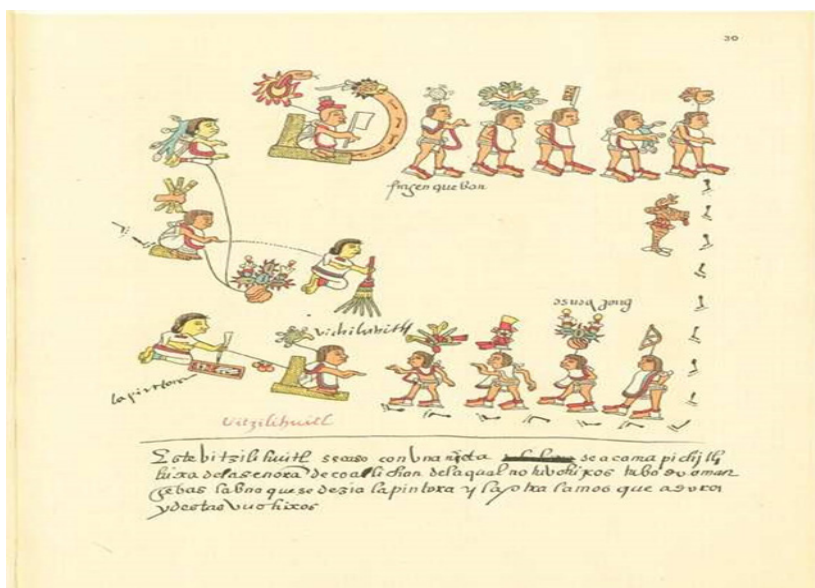 30
fingen que ban
la pintora
Vitzilihuitl
Este bitzilihuitl se caso con Vna nieta de acama pichi
hixa dela señora de coatlichan dela qual no tuvo hixos tubo
çebas la Vna que se dezia la pintora y la otra la
y destas Vuo hixos